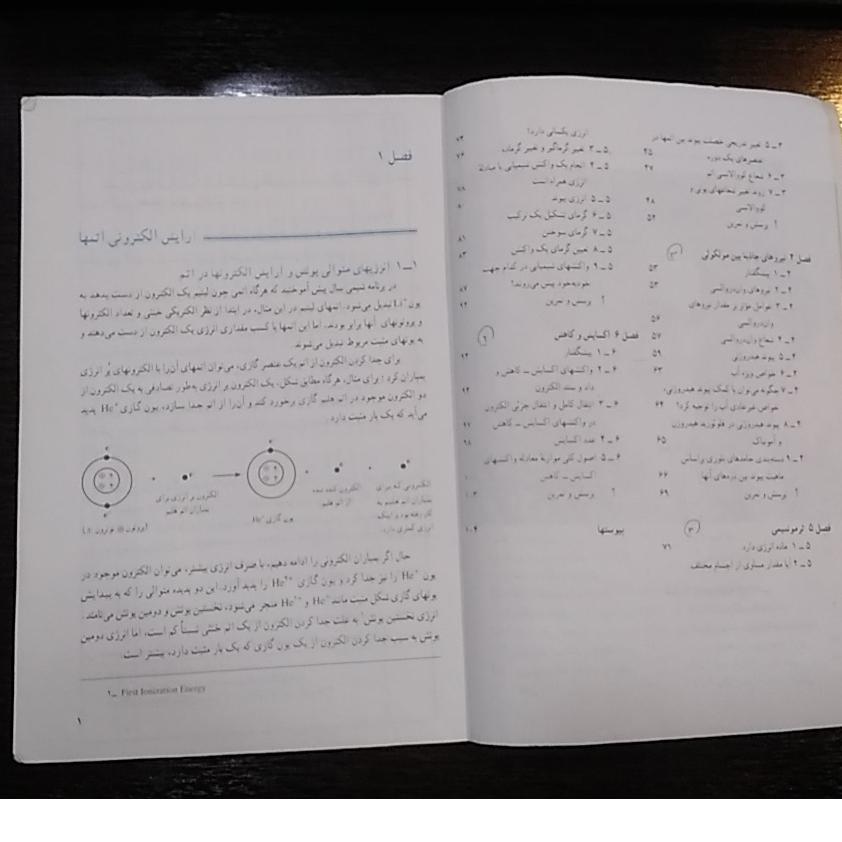 ۳ ـ ۵ تغییر تدریجی خصلت پیوند بین اتمها در
عنصرهای یک دوره ۴۵
۳ ـ ۶ شعاع وان‌دروالسی اتم ۴۷
۳ ـ ۷ روند تغییر شعاعهای یونی و
۴۸
؟ پرسش و تمرین ۵۲
فصل ۴ نیروهای جاذبهٔ بین مولکولی
۴ ـ ۱ پیشگفتار ۵۳
۴ ـ ۲ نیروهای وان‌دروالسی ۵۳
۴ ـ ۳ عوامل مؤثر بر مقدار نیروهای
وان‌دروالسی ۵۶
۴ ـ ۴ شعاع وان‌دروالسی ۵۷
۴ ـ ۵ پیوند هیدروژنی ۵۹
۴ ـ ۶ خواص ویژهٔ آب ۶۳
۴ ـ ۷ چگونه می‌توان با کمک پیوند هیدروژنی،
خواص غیرعادی آب را توجیه کرد؟ ۶۴
۴ ـ ۸ پیوند هیدروژنی در هیدروژن
و آمونیاک ۶۵
۴ ـ ۹ دسته‌بندی جامدهای بلوری براساس
ماهیت پیوند بین ذره‌های آنها ۶۶
؟ پرسش و تمرین ۶۹
فصل ۵ ترموشیمی
۵ ـ ۱ ماده انرژی دارد ۷۱
۵ ـ ۲ آیا مقدار مساوی از اجسام مختلف
انرژی یکسانی دارد؟ ۷۳
۵ ـ ۳ تغییر گرماگیر و تغییر گرماده ۷۶
۵ ـ ۴ انجام یک واکنش شیمیایی با مبادلهٔ
انرژی همراه است ۷۸
۵ ـ ۵ انرژی پیوند
۵ ـ ۶ گرمای تشکیل یک ترکیب
۵ ـ ۷ گرمای سوختن ۸۱
۵ ـ ۸ تعیین گرمای یک واکنش ۸۳
۵ ـ ۹ واکنشهای شیمیایی در کدام جهت
خودبه‌خود پیش می‌روند؟ ۸۷
؟ پرسش و تمرین ۹۲
فصل ۶ اکسایش و کاهش
۶ ـ ۱ پیشگفتار ۹۴
۶ ـ ۲ واکنشهای اکسایش ـ کاهش و
داد و ستد الکترون ۹۴
۶ ـ ۳ انتقال کامل و انتقال جزئی الکترون
در واکنشهای اکسایش ـ کاهش ۹۷
۶ ـ ۴ عدد اکسایش ۹۸
۶ ـ ۵ اصول کلی موازنهٔ معادله واکنشهای
اکسایش ـ کاهش
؟ پرسش و تمرین ۱۰۳
پیوستها ۱۰۴
فصل ۱
آرایش الکترونی اتمها
۱ـ۱ انرژیهای متوالی یونش و آرایش الکترونها در اتم
در برنامه شیمی سال پیش آموختید که هرگاه اتمی چون لیتیم یک الکترون از دست بدهد به
یون Li⁺ تبدیل می‌شود. اتمهای لیتیم در این مثال، در ابتدا از نظر الکتریکی خنثی و تعداد الکترونها
و پروتونهای آنها برابر بودند، اما این اتمها با کسب مقداری انرژی یک الکترون از دست می‌دهند و
به یونهای مثبت مربوط تبدیل می‌شوند.
برای جدا کردن الکترون از اتم یک عنصر گازی، می‌توان اتمهای آن را با الکترونهای پُر انرژی
بمباران کرد؛ برای مثال، هرگاه مطابق شکل، یک الکترون پر انرژی به‌طور تصادفی به یک الکترون از
دو الکترون موجود در اتم هلیم گازی برخورد کند و آن را از اتم جدا سازد، یون گازی He⁺ پدید
می‌آید که یک بار مثبت دارد.
الکترون پر انرژی برای
بمباران اتم هلیم
یون گازی He⁺
الکترون کنده شده
از اتم هلیم
الکترونی که برای
بمباران اتم هلیم به
کار رفته بود و اینک
انرژی کمتری دارد.
حال اگر بمباران الکترونی را ادامه دهیم، با صرف انرژی بیشتر، می‌توان الکترون موجود در
یون He⁺ را نیز جدا کرد و یون گازی He²⁺ را پدید آورد. این دو پدیده متوالی را که به پیدایش
یونهای گازی شکل مثبت مانند He⁺ و He²⁺ منجر می‌شود، نخستین یونش و دومین یونش می‌نامند.
انرژی نخستین یونش¹ به علت جدا کردن الکترون از یک اتم خنثی نسبتاً کم است، اما انرژی دومین
یونش به سبب جدا کردن الکترون از یک یون گازی که یک بار مثبت دارد، بیشتر است.
۱ـ First Ionization Energy
۱